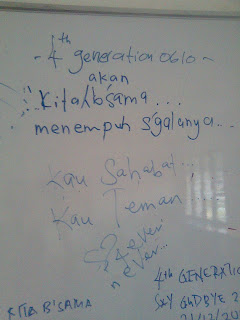 - 4th generation 0610 -
akan
Kita/b'sama...
menempuh s'galanya...
Kau Sahabat...
Kau Teman...
ever
ever...
4th GENERATIO
SAY GUDBYE 2
21/12/20
KITA B'SAMA